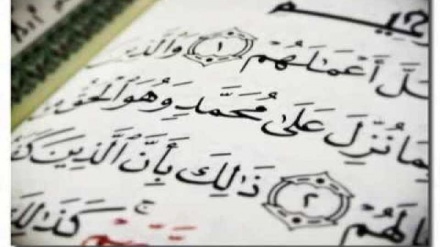 ـيم
ـلَّ أَعْمَـٰلَهُمْ ١ وَٱلَّذِيـ
بِمَا نُزِّلَ عَلَىٰ مُحَمَّدٍ وَهُوَ ٱلْحَقُّ
ـالَهُمْ ٢ ذَٰلِكَ بِأَنَّ ٱلَّذِينَ كَفَـ
كَذَٰلِكَ